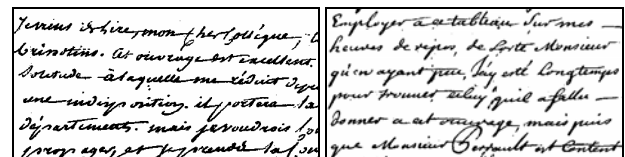 Je viens de lire, mon cher collègue,
brissotins. Cet ouvrage est excellent.
Solitude à laquelle me réduit
une indisposition. il portera la
départements. mais je voudrois
propager, et je prends la
Employer a ce tableau Sur mes —
heures de repos, de sorte Monsieur
qu'en ayant peu, Jay esté Longtemps
pour trouver celuy quil a fallu —
donner a cet ouvrage, mais puis
que Monsieur Perrault est Content